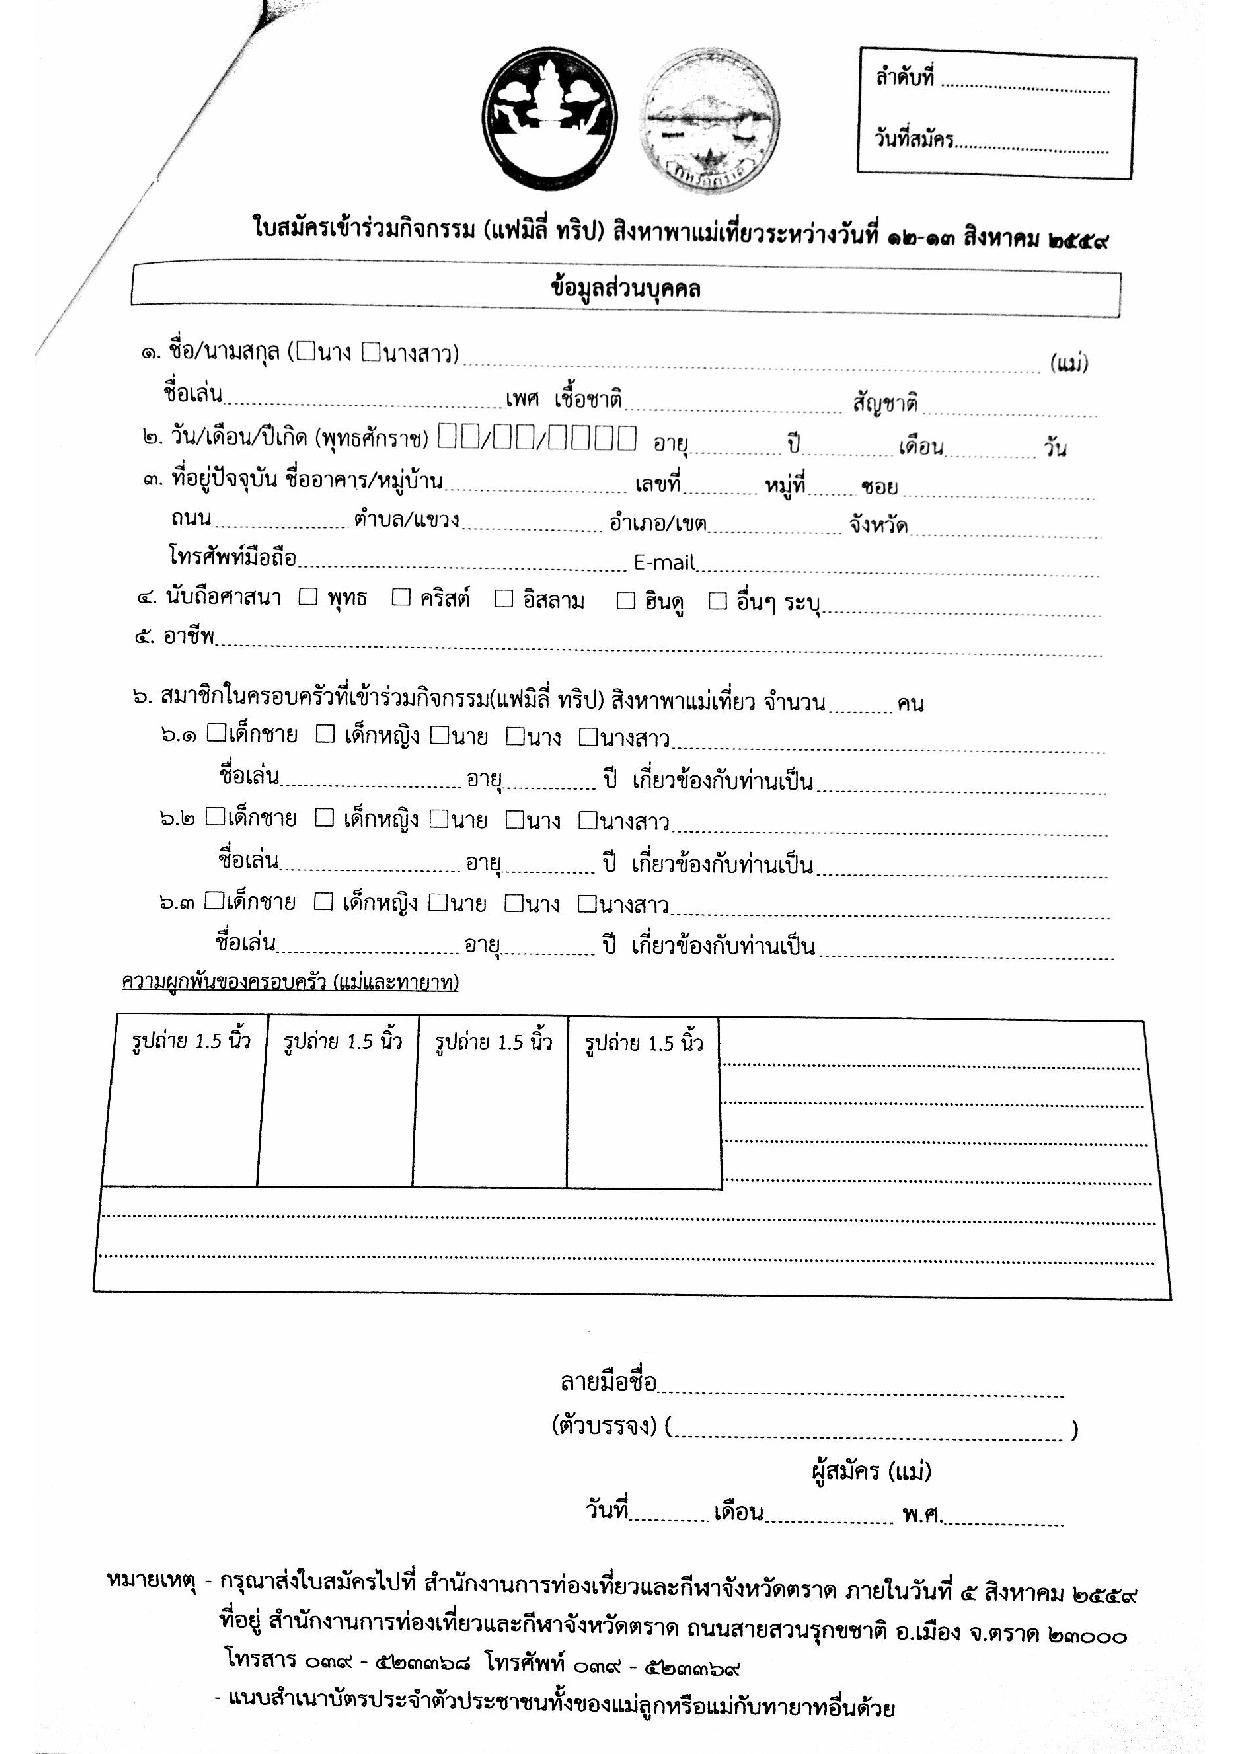 ลำดับที่
วันที่สมัคร
ใบสมัครเข้าร่วมกิจกรรม (แฟมิลี่ ทริป) สิงหาพาแม่เที่ยวระหว่างวันที่ ๑๒-๑๓ สิงหาคม ๒๕๕๙
ข้อมูลส่วนบุคคล
๑. ชื่อ/นามสกุล (☐นาง ☐นางสาว) (แม่)
ชื่อเล่น เพศ เชื้อชาติ สัญชาติ
๒. วัน/เดือน/ปีเกิด (พุทธศักราช) ☐☐/☐☐/☐☐☐☐ อายุ ปี เดือน วัน
๓. ที่อยู่ปัจจุบัน ชื่ออาคาร/หมู่บ้าน เลขที่ หมู่ที่ ซอย
ถนน ตำบล/แขวง อำเภอ/เขต จังหวัด
โทรศัพท์มือถือ E-mail
๔. นับถือศาสนา ☐ พุทธ ☐ คริสต์ ☐ อิสลาม ☐ ฮินดู ☐ อื่นๆ ระบุ
๕. อาชีพ
๖. สมาชิกในครอบครัวที่เข้าร่วมกิจกรรม(แฟมิลี่ ทริป) สิงหาพาแม่เที่ยว จำนวน คน
๖.๑ ☐เด็กชาย ☐ เด็กหญิง ☐นาย ☐นาง ☐นางสาว
ชื่อเล่น อายุ ปี เกี่ยวข้องกับท่านเป็น
๖.๒ ☐เด็กชาย ☐ เด็กหญิง ☐นาย ☐นาง ☐นางสาว
ชื่อเล่น อายุ ปี เกี่ยวข้องกับท่านเป็น
๖.๓ ☐เด็กชาย ☐ เด็กหญิง ☐นาย ☐นาง ☐นางสาว
ชื่อเล่น อายุ ปี เกี่ยวข้องกับท่านเป็น
ความผูกพันของครอบครัว (แม่และทายาท)
รูปถ่าย 1.5 นิ้ว รูปถ่าย 1.5 นิ้ว รูปถ่าย 1.5 นิ้ว รูปถ่าย 1.5 นิ้ว
ลายมือชื่อ
(ตัวบรรจง) ( )
ผู้สมัคร (แม่)
วันที่ เดือน พ.ศ.
หมายเหตุ - กรุณาส่งใบสมัครไปที่ สำนักงานการท่องเที่ยวและกีฬาจังหวัดตราด ภายในวันที่ ๕ สิงหาคม ๒๕๕๙
ที่อยู่ สำนักงานการท่องเที่ยวและกีฬาจังหวัดตราด ถนนสายสวนรุกขชาติ อ.เมือง จ.ตราด ๒๓๐๐๐
โทรสาร ๐๓๙ - ๕๒๓๓๖๘ โทรศัพท์ ๐๓๙ - ๕๒๓๓๖๙
- แนบสำเนาบัตรประจำตัวประชาชนทั้งของแม่ลูกหรือแม่กับทายาทอื่นด้วย